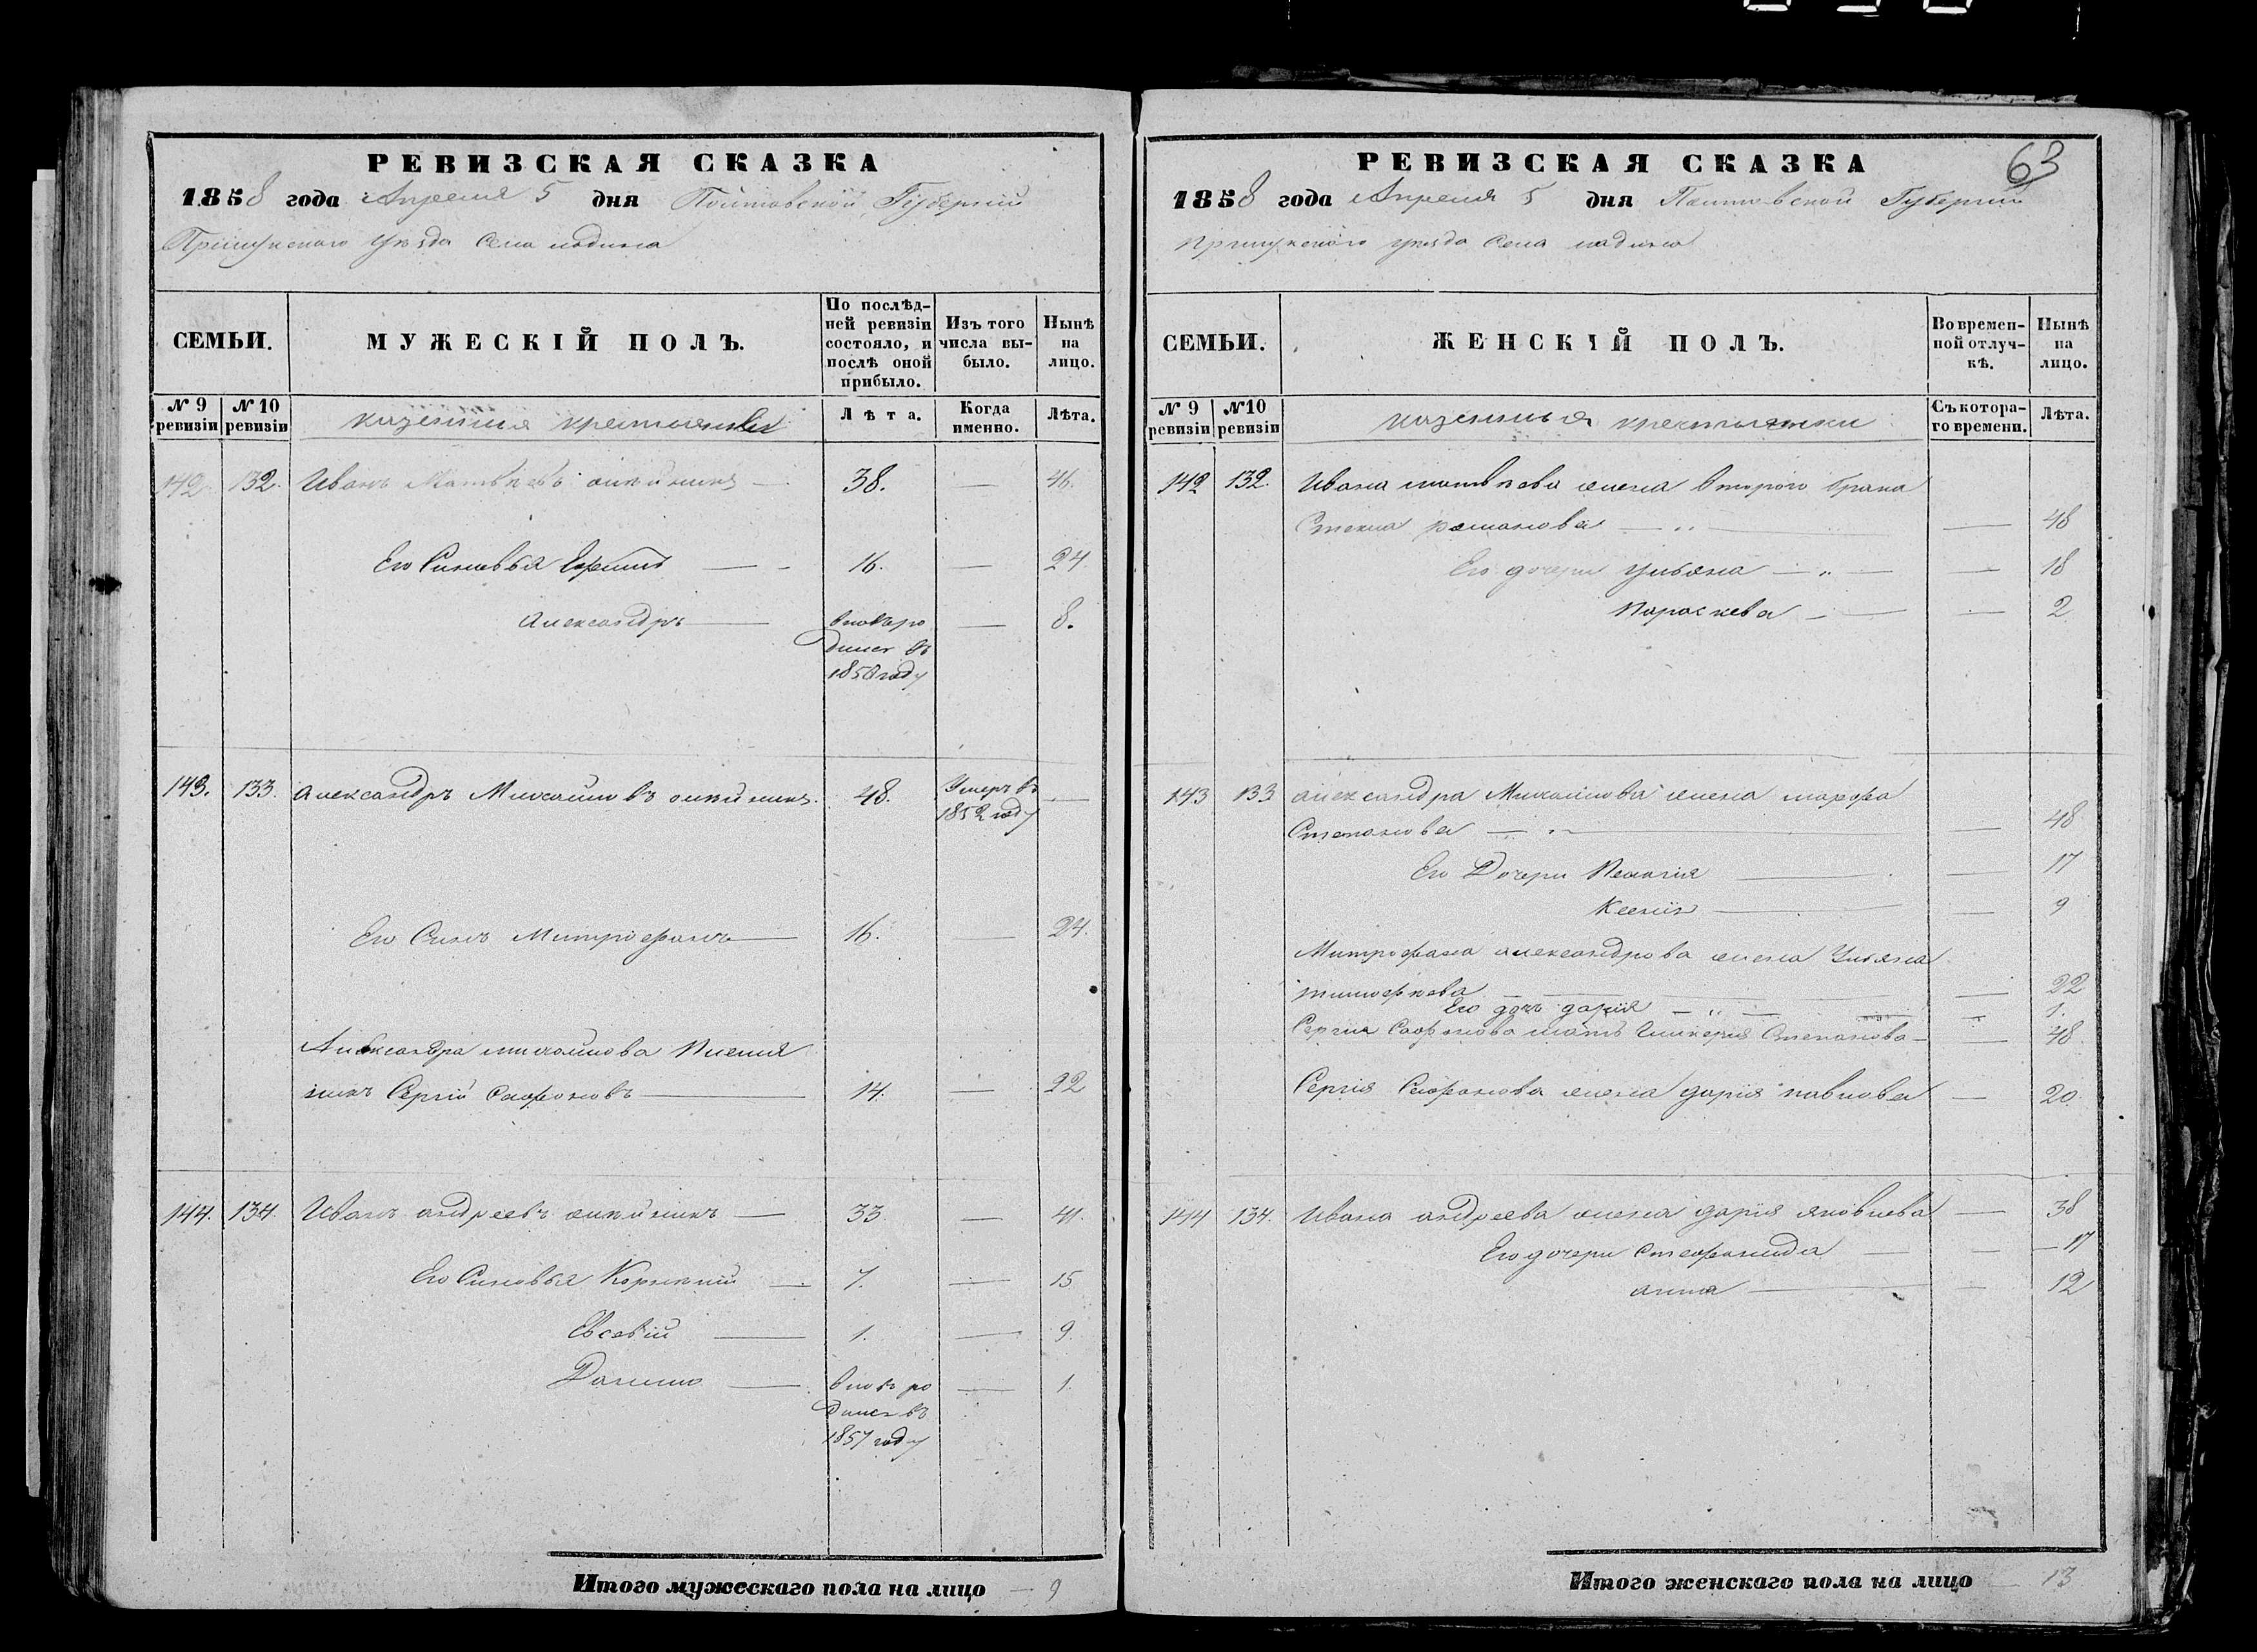 РЕВИЗСКАЯ СКАЗКА
1858 года Апреля 5 дня Полтавской Губернии
Прилукского уезда села ладина
СЕМЬИ.
МУЖЕСКІЙ ПОЛЪ.
По послѣд-
ней ревизіи
состояло, и
послѣ оной
прибыло.
Изъ того
числа вы-
было.
Нынѣ
на
лицо.
№ 9
ревизіи
№ 10
ревизіи
казенныя крестьяне
Лѣта.
Когда
именно.
Лѣта.
142. 132. Иванъ Матвѣевъ — 38. — 46.
Его Сыновья Ефимъ — 16. — 24
александръ — вновь ро — 8.
дился въ
1850 году
143. 133. александръ Михайловъ 48. Умеръ въ —
1852 году
Его Сынъ Митрофанъ — 16. — 24.
Александра михайлова Племян
никъ Сергій Сафоновъ — 14. — 22
144. 134. Иванъ андреевъ — 33 — 41.
Его Сыновья Корнилий — 7. — 15
Евсевій — 1. — 9.
Данило — вновь ро — 1.
дился въ
1857 году
Итого мужескаго пола на лицо — 9
63
РЕВИЗСКАЯ СКАЗКА
1858 года Апреля 5 дня Полтавской Губернии
прилукского уезда села ладина
СЕМЬИ.
ЖЕНСКІЙ ПОЛЪ.
Во времен-
ной отлуч-
кѣ.
Нынѣ
на
лицо.
№ 9
ревизіи
№ 10
ревизіи
казенныя крестьянки
Съ котора-
го времени.
Лѣта.
142 132. Ивана матвѣева жена второго брака
романова — „ — — 48
Его дочери ульяна — „ — — 18
параскева — — 2
143 133 александра Михайлова жена марфа
Степанова — „ — — 48
Его Дочери Пелагія — — 17
Ксенія — — 9
Митрофана александрова жена Ульяна
тимофѣева — — 22
Его дочь дарія — „ — — 1.
Сергия Сафонова мать Гликерия Степанова — — 48
Сергія Сафонова жена дарія павлова — 20.
144 134. Ивана андреева жена дарія яковлева — 38
Его дочери стефанида — — 17
анна — — 12
Итого женскаго пола на лицо 13